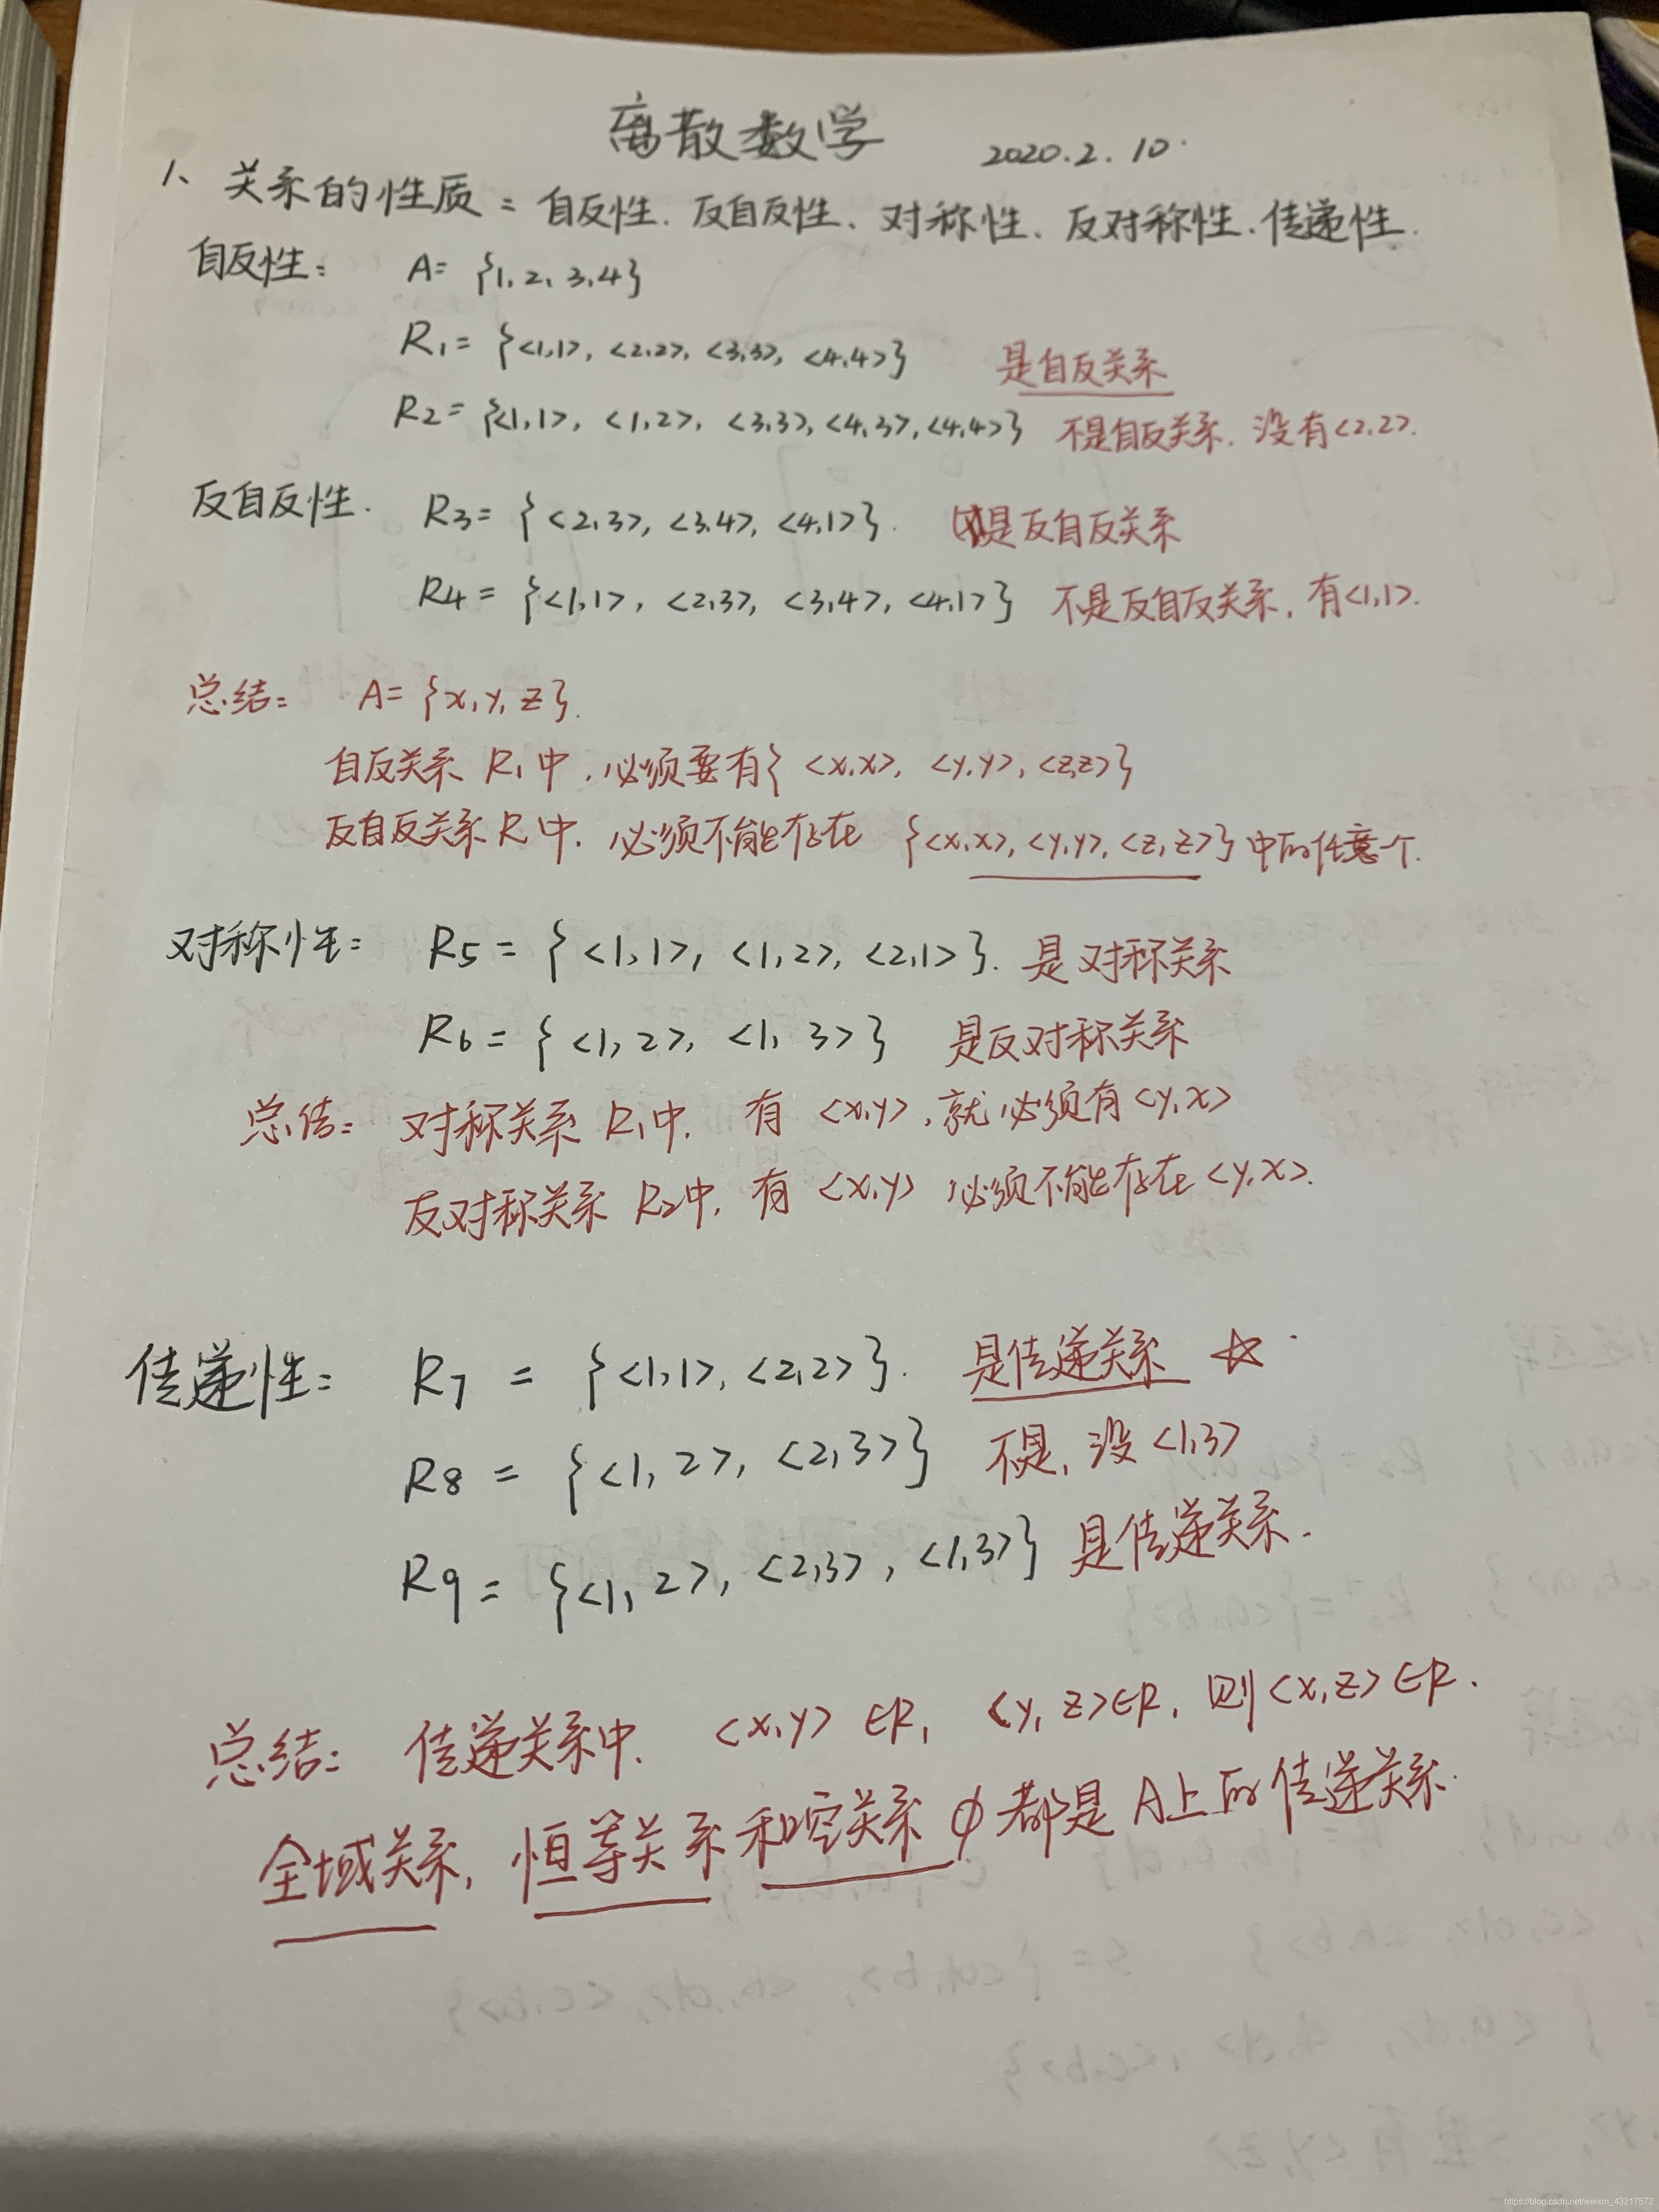 离散数学 2020.2.10.
1、关系的性质: 自反性、反自反性、对称性、反对称性、传递性.
自反性: A= {1, 2, 3, 4}
R1= {<1,1>, <2,2>, <3,3>, <4,4>} 是自反关系
R2= {<1,1>, <1,2>, <3,3>, <4,3>, <4,4>} 不是自反关系. 没有<2,2>.
反自反性. R3= {<2,3>, <3,4>, <4,1>}. 是反自反关系
R4= {<1,1>, <2,3>, <3,4>, <4,1>} 不是反自反关系, 有<1,1>.
总结: A= {x, y, z}.
自反关系 R1中, 必须要有{<x,x>, <y,y>, <z,z>}
反自反关系 R中, 必须不能存在 {<x,x>, <y,y>, <z,z>} 中的任意一个.
对称性: R5= {<1,1>, <1,2>, <2,1>}. 是对称关系
R6= {<1,2>, <1,3>} 是反对称关系
总结: 对称关系 R1中, 有 <x,y>, 就必须有<y,x>
反对称关系 R2中, 有 <x,y> 必须不能存在<y,x>.
传递性: R7 = {<1,1>, <2,2>}. 是传递关系 ☆
R8 = {<1,2>, <2,3>} 不是, 没<1,3>
R9= {<1,2>, <2,3>, <1,3>} 是传递关系.
总结: 传递关系中, <x,y>∈R, <y,z>∈R, 则<x,z>∈R.
全域关系, 恒等关系和空关系 ∅ 都是 A上的传递关系.
https://blog.csdn.net/weixin_43217572